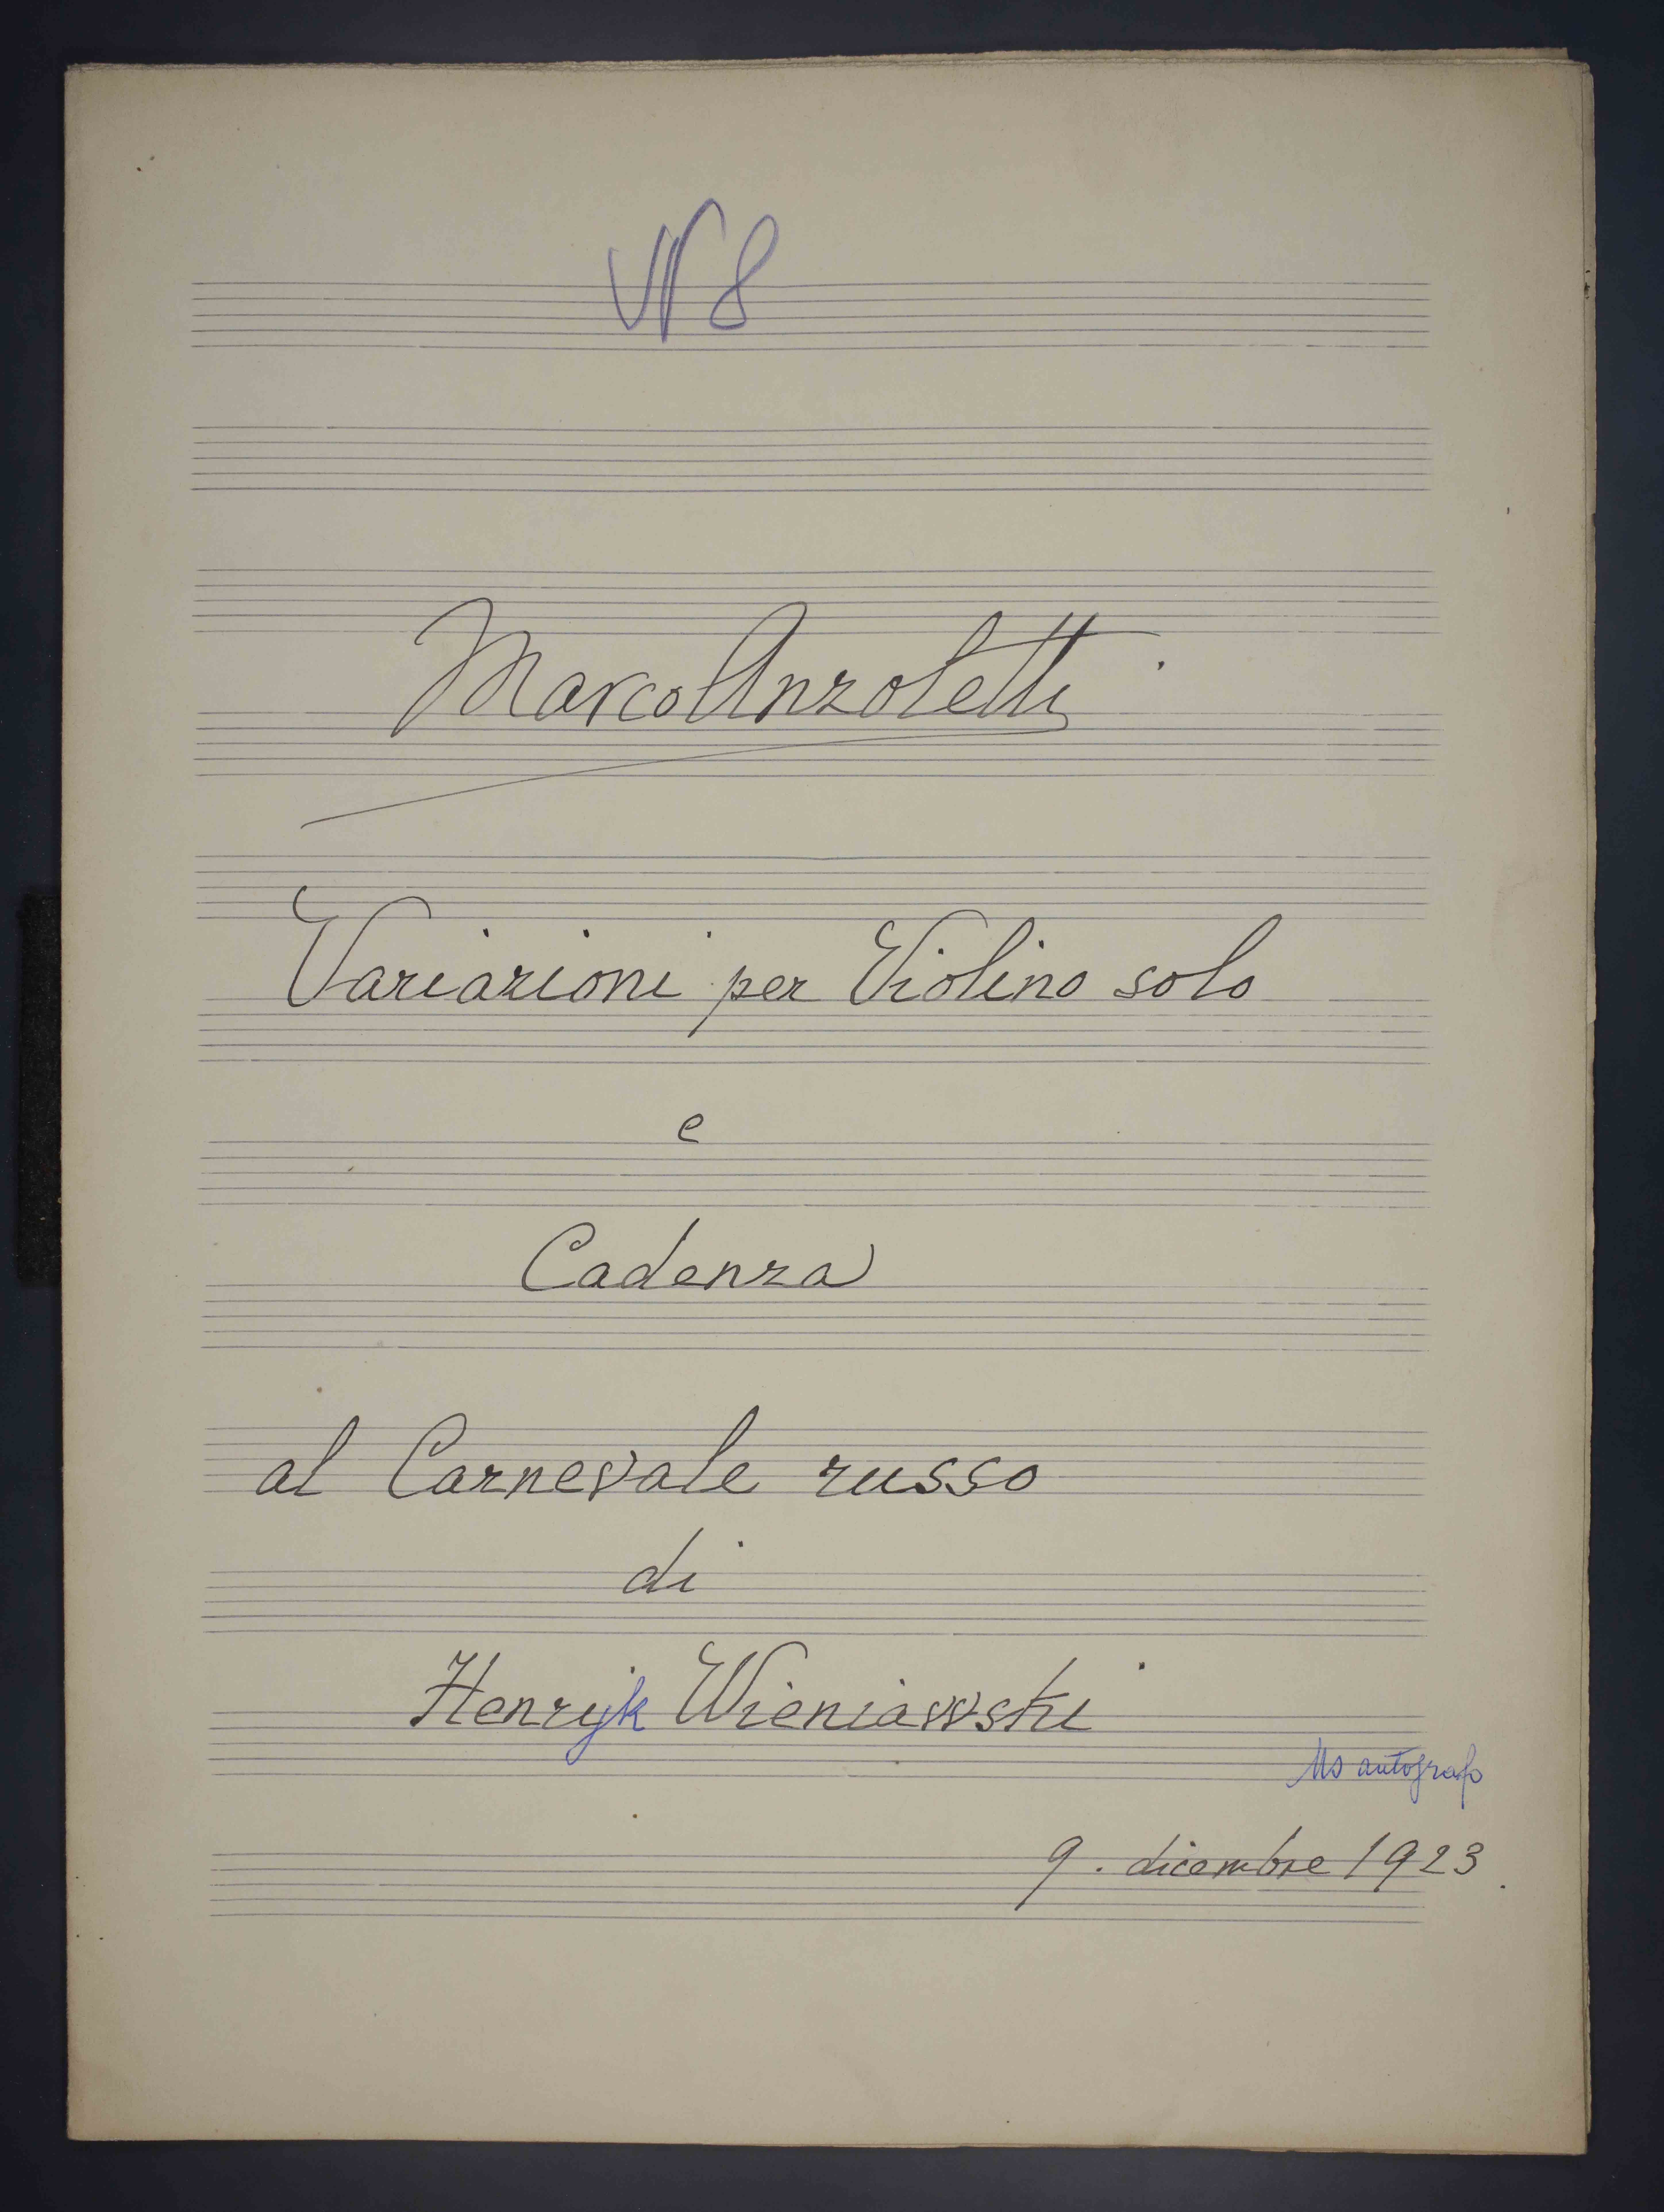 N 8
Marco Anzoletti
Variazioni per Violino solo
e
Cadenza
al Carnevale russo
di
Henryk Wieniawski
Ms autografo
9. dicembre 1923.